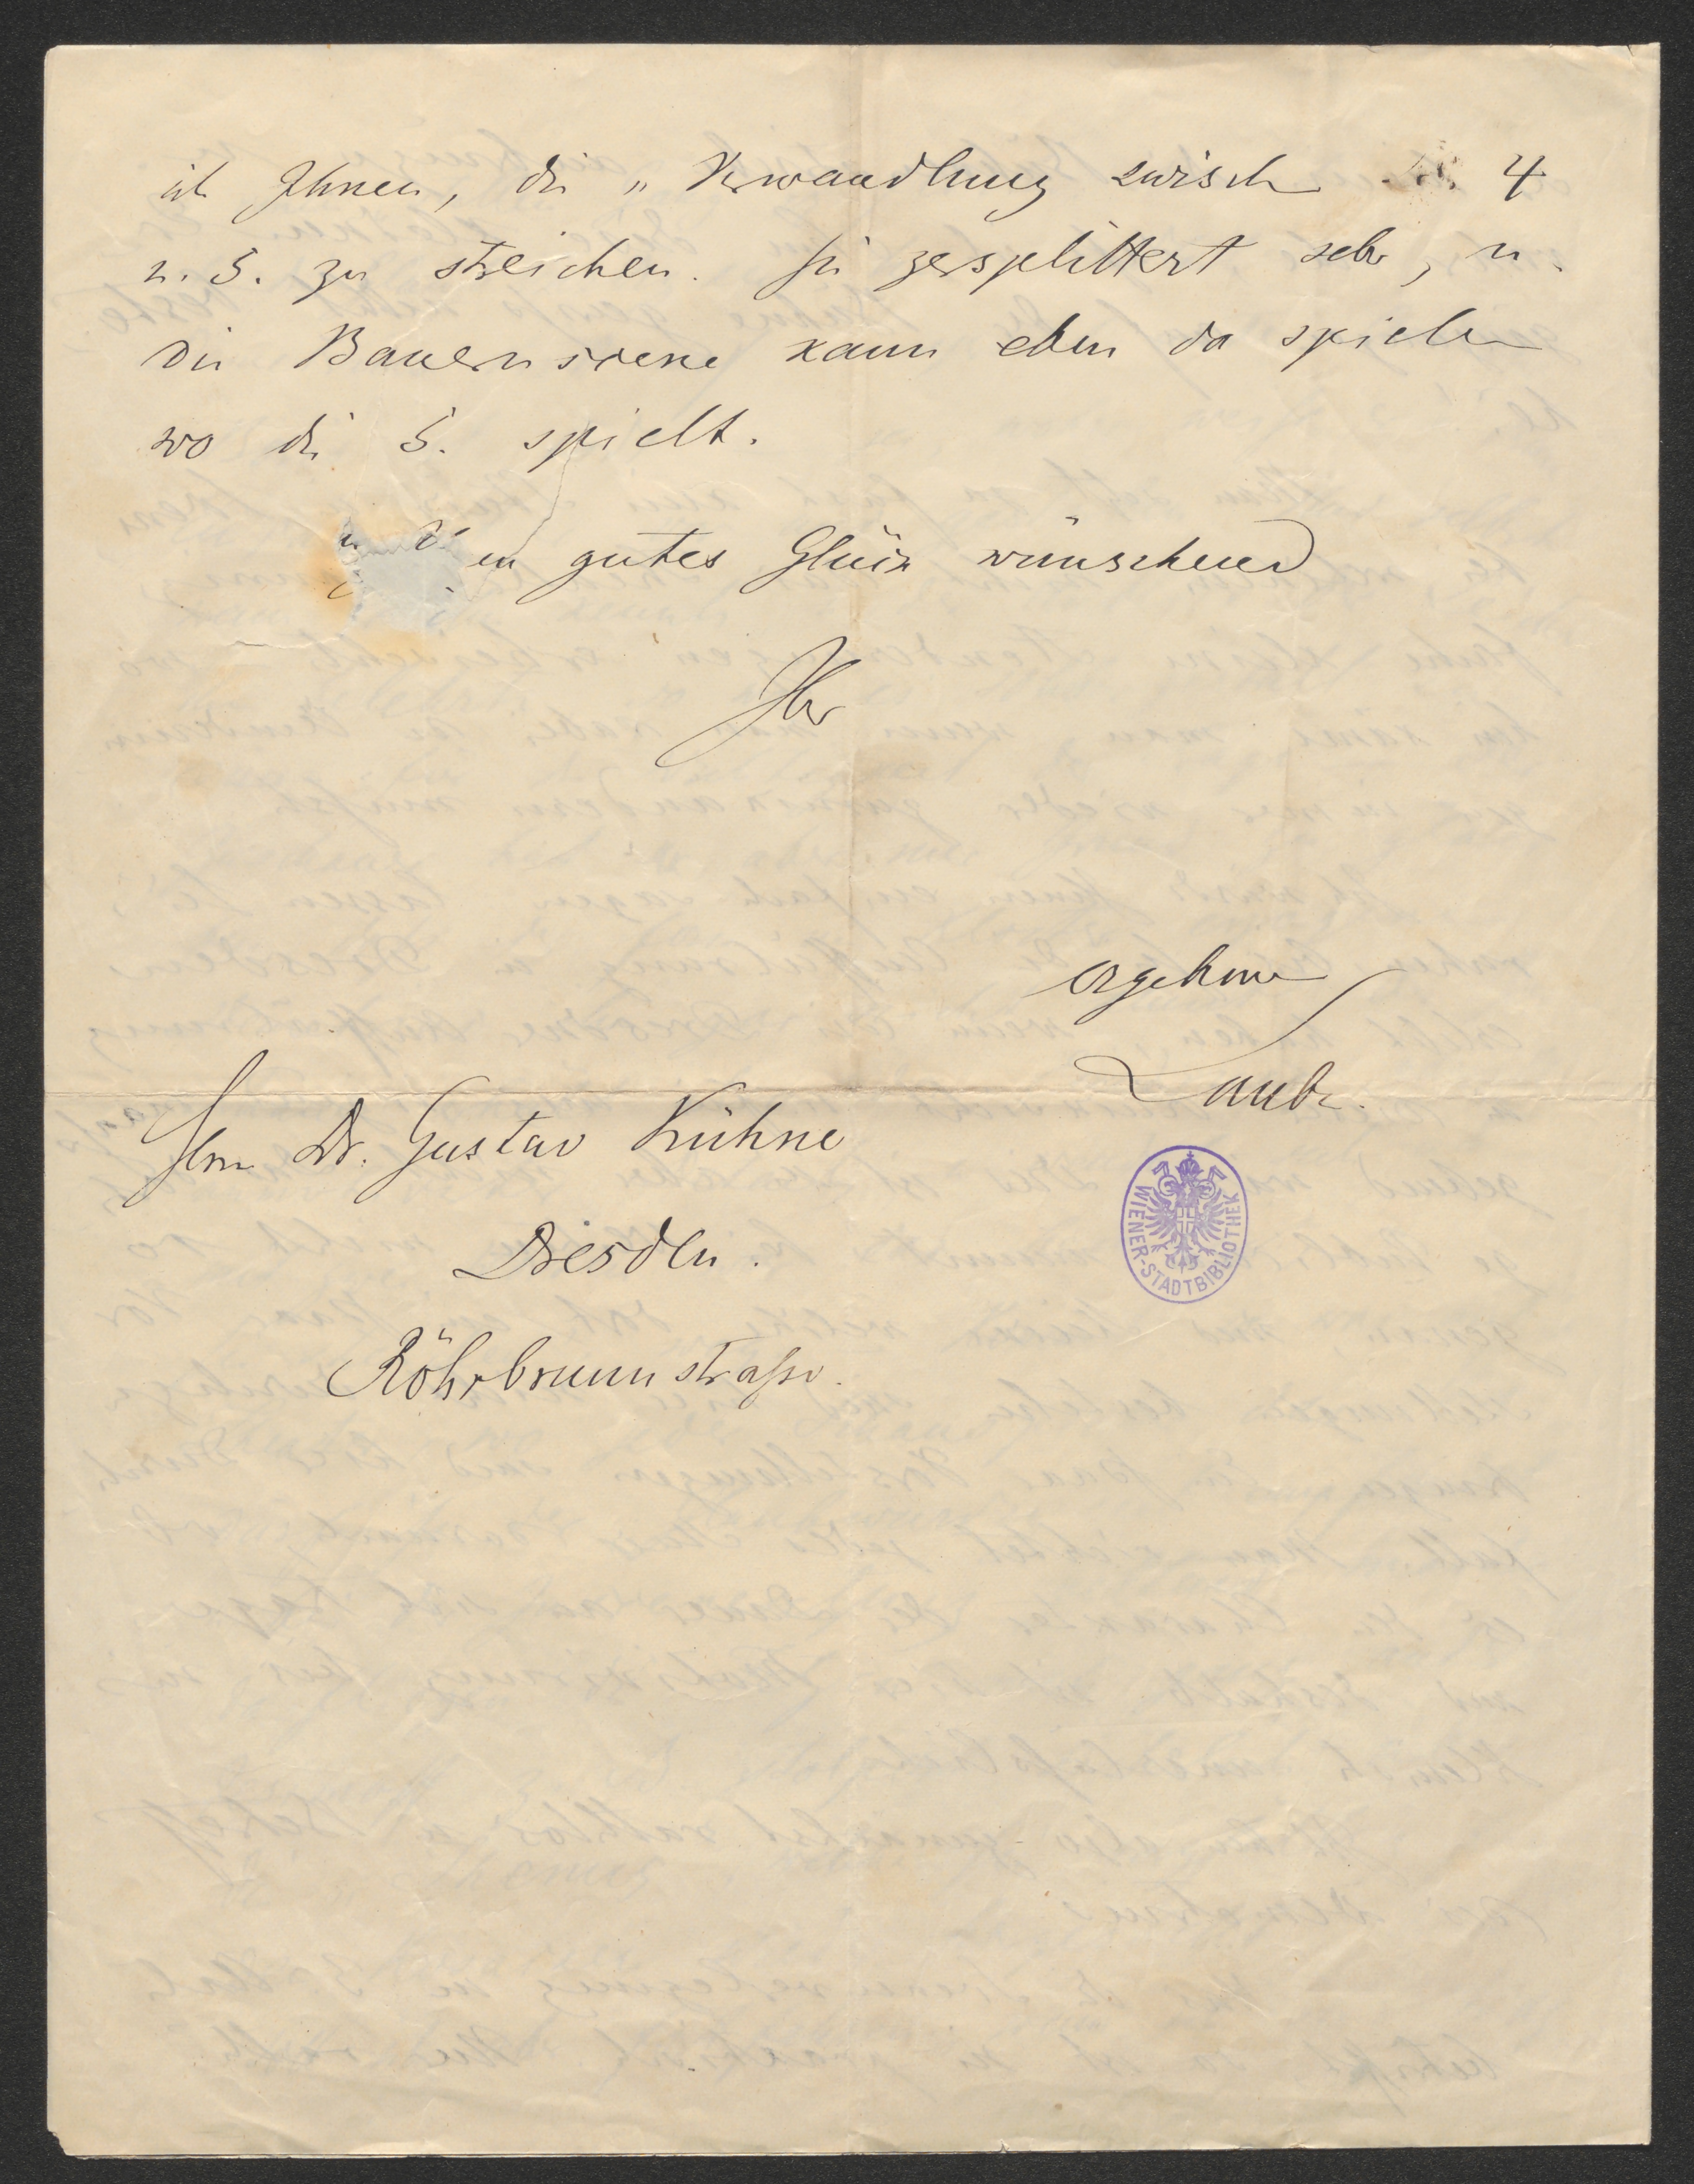 ich Ihnen, die „Verwandlung zwischen 4
u. 5. zu streichen. Sie zersplittert sehr, u.
die Bauernscene kann eben da spielen
wo die 5. spielt.
gutes Glück wünschend
Ihr
ergebener
Laube.
Herrn Dr. Gustav Kühne
Dresden.
Röhrbrunnstraße.
WIENER-STADTBIBLIOTHEK